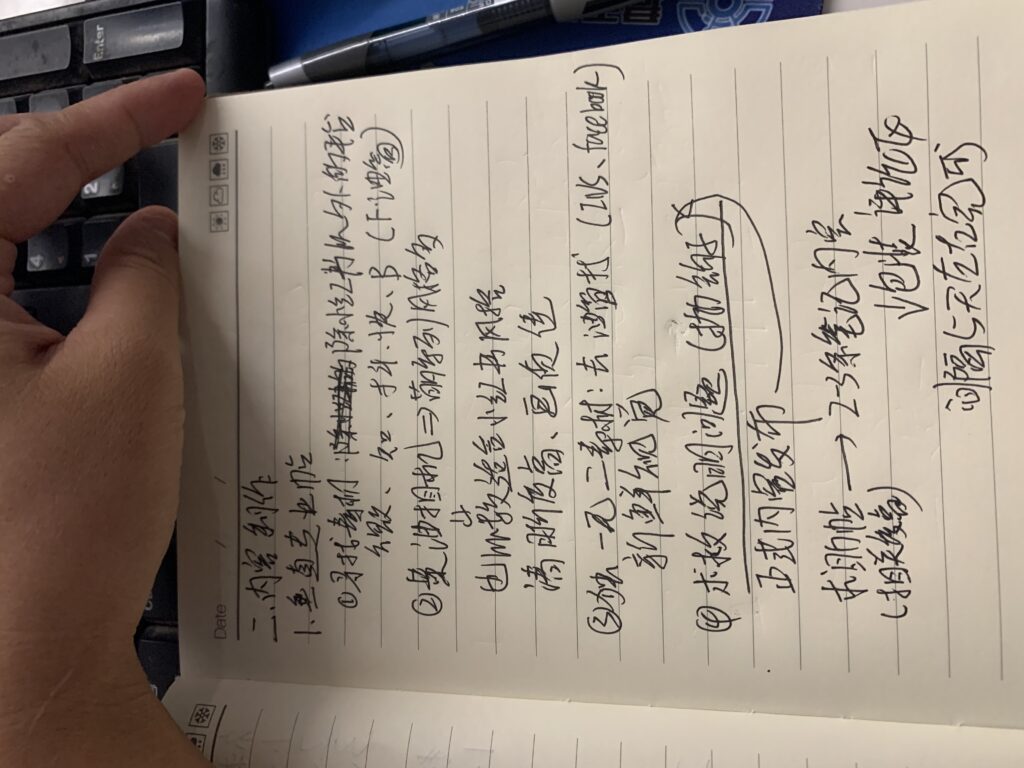 4
1
2
Enter
Date / /
二、内容制作
1、垂直专业帖
①寻找素材：除小红书以外的平台
知、抖、快、B（下油管）
②柴油相机⇒萌系列风格多
↓
也比较适合小红书风格
清晰度高、画质佳
③独一无二素材：去油管找（INS、facebook）
新鲜视觉
④求救说明问题（抛钩子）
正式内容发布
求助帖→2-3条笔记内容
（相关度高）
↓包装评论区
间隔5天左右完成